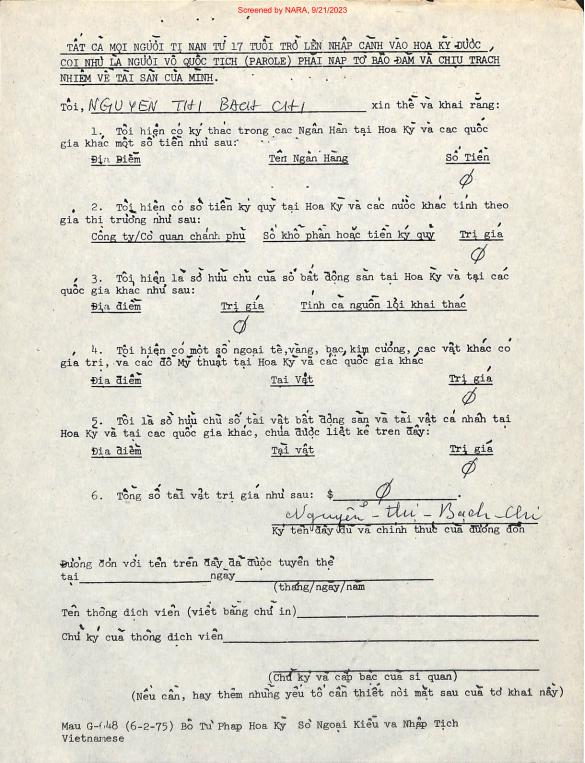 Screened by NARA, 9/21/2023
TẤT CẢ MỌI NGƯỜI TỊ NẠN TỪ 17 TUỔI TRỞ LÊN NHẬP CẢNH VÀO HOA KỲ ĐƯỢC
COI NHƯ LÀ NGƯỜI VÔ QUỐC TỊCH (PAROLE) PHẢI NẠP TỜ BẢO ĐẢM VÀ CHỊU TRÁCH
NHIỆM VỀ TÀI SẢN CỦA MÌNH.
Tôi, NGUYEN THI BACH CHI xin thề và khai rằng:
1. Tôi hiện có ký thác trong các Ngân Hàn tại Hoa Kỳ và các quốc
gia khác một số tiền như sau:
Địa Điểm Tên Ngân Hàng Số Tiền
Ø
2. Tôi hiện có số tiền ký quỹ tại Hoa Kỳ và các nước khác tính theo
giá thị trường như sau:
Công ty/Cơ quan chánh phủ Số khổ phần hoặc tiền ký quỹ Trị giá
Ø
3. Tôi hiện là sở hữu chủ của số bất động sản tại Hoa Kỳ và tại các
quốc gia khác như sau:
Địa điểm Trị giá Tính cả nguồn lợi khai thác
Ø
4. Tôi hiện có một số ngoại tệ, vàng, bạc, kim cương, các vật khác có
giá trị, và các đồ Mỹ thuật tại Hoa Kỳ và các quốc gia khác
Địa điểm Tài Vật Trị giá
Ø
5. Tôi là sở hữu chủ số tài vật bất động sản và tài vật cá nhân tại
Hoa Kỳ và tại các quốc gia khác, chưa được liệt kê trên đây:
Địa điểm Tài vật Trị giá
Ø
6. Tổng số tài vật trị giá như sau: $ Ø .
Nguyễn - thị - Bạch - Chi
Ký tên đầy đủ và chính thức của đương đơn
Đương đơn với tên trên đây đã được tuyên thệ
tại ngày
(tháng/ngày/năm
Tên thông dịch viên (viết bằng chữ in)
Chữ ký của thông dịch viên
(Chữ ký và cấp bậc của sĩ quan)
(Nếu cần, hãy thêm những yếu tố cần thiết nơi mặt sau của tờ khai này)
Mẫu G-648 (6-2-75) Bộ Tư Pháp Hoa Kỳ Sở Ngoại Kiều và Nhập Tịch
Vietnamese